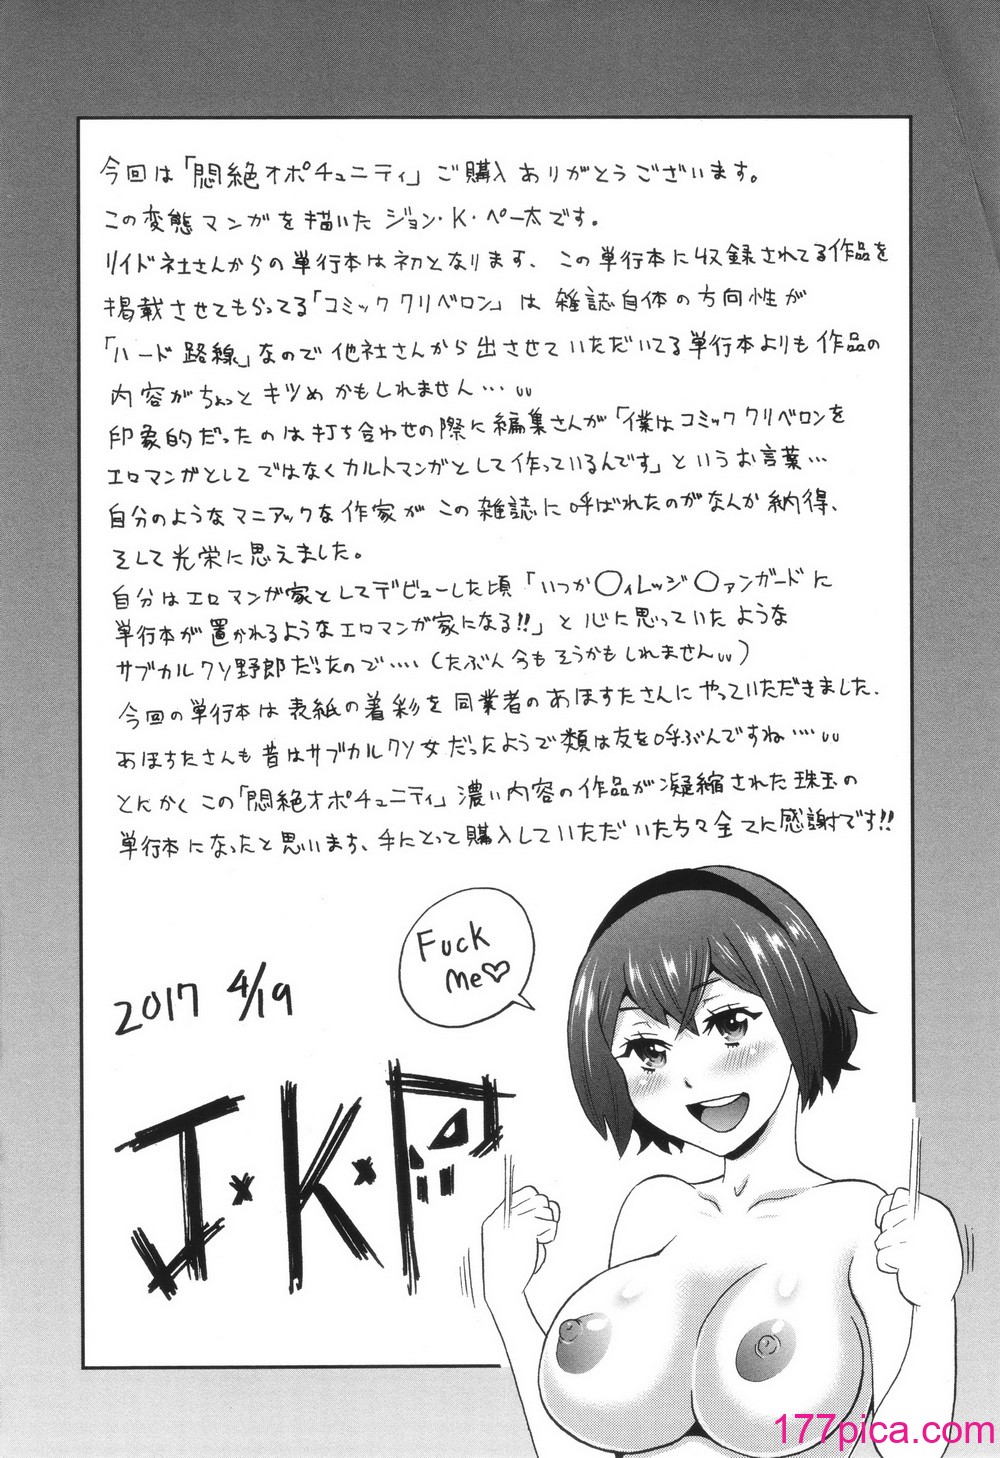 今回は「悶絶オポチュニティ」ご購入ありがとうございます。
この変態マンガを描いたジョン・K・ペー太です。
リイド社さんからの単行本は初となります、この単行本に収録されてる作品を
掲載させてもらってる「コミッククリベロン」は雑誌自体の方向性が
「ハード路線」なので他社さんから出させていただいてる単行本よりも作品の
内容がちょっとキツめかもしれません…
印象的だったのは打ち合わせの際に編集さんが「僕はコミッククリベロンを
エロマンガとしてではなくカルトマンガとして作っているんです」というお言葉…
自分のようなマニアックな作家がこの雑誌に呼ばれたのがなんか納得、
そして光栄に思えました。
自分はエロマンガ家としてデビューした頃「いつか〇ィレッジ〇ァンガードに
単行本が置かれるようなエロマンガ家になる!!」と心に思っていたような
サブカルクソ野郎だったので‥‥(たぶん今もそうかもしれません)
今回の単行本は表紙の着彩を同業者のあほすたさんにやっていただきました、
あほすたさんも昔はサブカルクソ女だったようで類は友を呼ぶんですね‥‥
とにかくこの「悶絶オポチュニティ」濃い内容の作品が凝縮された珠玉の
単行本になったと思います、手にとって購入していただいた方々全てに感謝です!!
Fuck
Me♡
2017 4/19
J・K・P
177pica.com